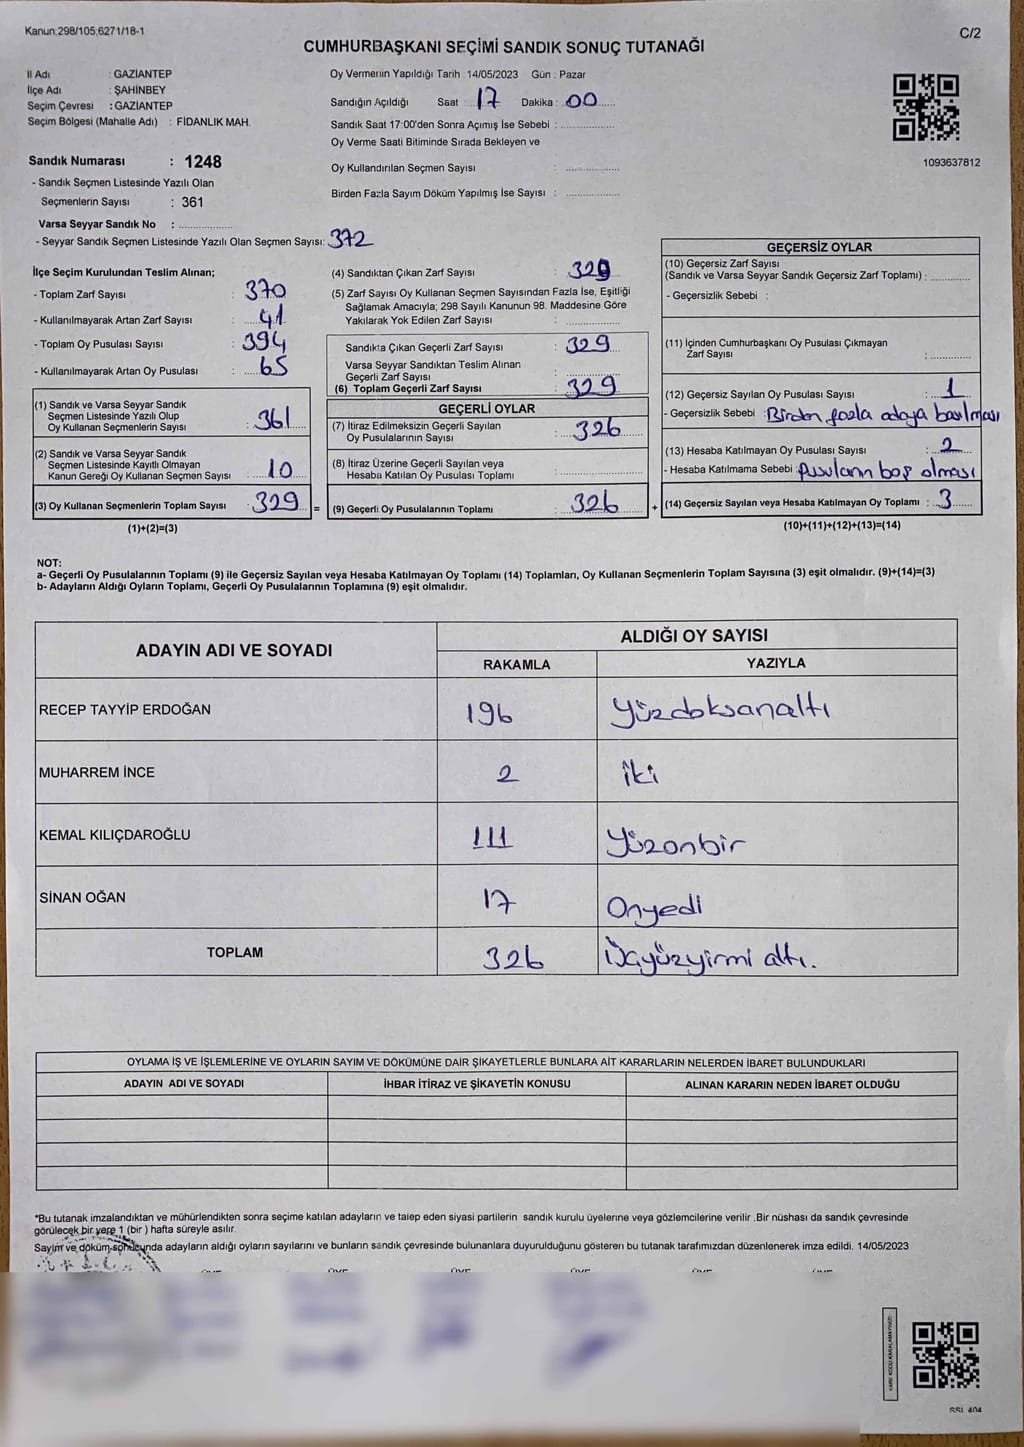 Kanun:298/105;6271/18-1
C/2
CUMHURBAŞKANI SEÇİMİ SANDIK SONUÇ TUTANAĞI
İl Adı : GAZİANTEP
İlçe Adı : ŞAHİNBEY
Seçim Çevresi : GAZİANTEP
Seçim Bölgesi (Mahalle Adı) : FİDANLIK MAH.
Sandık Numarası : 1248
- Sandık Seçmen Listesinde Yazılı Olan
Seçmenlerin Sayısı : 361
Varsa Seyyar Sandık No : ..................
- Seyyar Sandık Seçmen Listesinde Yazılı Olan Seçmen Sayısı: 372
Oy Vermenin Yapıldığı Tarih : 14/05/2023 Gün : Pazar
Sandığın Açıldığı Saat : 17 Dakika : 00
Sandık Saat 17:00'den Sonra Açımış İse Sebebi : ..................
Oy Verme Saati Bitiminde Sırada Bekleyen ve
Oy Kullandırılan Seçmen Sayısı : ..................
Birden Fazla Sayım Döküm Yapılmış İse Sayısı : ..................
1093637812
İlçe Seçim Kurulundan Teslim Alınan;
- Toplam Zarf Sayısı : 370
- Kullanılmayarak Artan Zarf Sayısı : 41
- Toplam Oy Pusulası Sayısı : 394
- Kullanılmayarak Artan Oy Pusulası : 65
(1) Sandık ve Varsa Seyyar Sandık
Seçmen Listesinde Yazılı Olup
Oy Kullanan Seçmenlerin Sayısı : 361
(2) Sandık ve Varsa Seyyar Sandık
Seçmen Listesinde Kayıtlı Olmayan
Kanun Gereği Oy Kullanan Seçmen Sayısı : 10
(3) Oy Kullanan Seçmenlerin Toplam Sayısı : 329 =
(1)+(2)=(3)
(4) Sandıktan Çıkan Zarf Sayısı : 329
(5) Zarf Sayısı Oy Kullanan Seçmen Sayısından Fazla İse, Eşitliği
Sağlamak Amacıyla; 298 Sayılı Kanunun 98. Maddesine Göre
Yakılarak Yok Edilen Zarf Sayısı : ..................
Sandıkta Çıkan Geçerli Zarf Sayısı : 329
Varsa Seyyar Sandıktan Teslim Alınan
Geçerli Zarf Sayısı : ..................
(6) Toplam Geçerli Zarf Sayısı : 329
GEÇERLİ OYLAR
(7) İtiraz Edilmeksizin Geçerli Sayılan
Oy Pusulalarının Sayısı : 326
(8) İtiraz Üzerine Geçerli Sayılan veya
Hesaba Katılan Oy Pusulaları Toplamı : ..................
(9) Geçerli Oy Pusulalarının Toplamı : 326 +
GEÇERSİZ OYLAR
(10) Geçersiz Zarf Sayısı
(Sandık ve Varsa Seyyar Sandık Geçersiz Zarf Toplamı) : ............
- Geçersizlik Sebebi :
(11) İçinden Cumhurbaşkanı Oy Pusulası Çıkmayan
Zarf Sayısı : ............
(12) Geçersiz Sayılan Oy Pusulası Sayısı : 1
- Geçersizlik Sebebi : Birden fazla adaya basılması
(13) Hesaba Katılmayan Oy Pusulası Sayısı : 2
- Hesaba Katılmama Sebebi : Pusuların boş olması
(14) Geçersiz Sayılan veya Hesaba Katılmayan Oy Toplamı : 3
(10)+(11)+(12)+(13)=(14)
NOT:
a- Geçerli Oy Pusulalarının Toplamı (9) ile Geçersiz Sayılan veya Hesaba Katılmayan Oy Toplamı (14) Toplamları, Oy Kullanan Seçmenlerin Toplam Sayısına (3) eşit olmalıdır. (9)+(14)=(3)
b- Adayların Aldığı Oyların Toplamı, Geçerli Oy Pusulalarının Toplamına (9) eşit olmalıdır.
ADAYIN ADI VE SOYADI
ALDIĞI OY SAYISI
RAKAMLA YAZIYLA
RECEP TAYYİP ERDOĞAN 196 Yüzdoksanaltı
MUHARREM İNCE 2 iki
KEMAL KILIÇDAROĞLU 111 Yüzonbir
SİNAN OĞAN 17 Onyedi
TOPLAM 326 Üçyüzyirmi altı.
OYLAMA İŞ VE İŞLEMLERİNE VE OYLARIN SAYIM VE DÖKÜMÜNE DAİR ŞİKAYETLERLE BUNLARA AİT KARARLARIN NELERDEN İBARET BULUNDUKLARI
ADAYIN ADI VE SOYADI İHBAR İTİRAZ VE ŞİKAYETİN KONUSU ALINAN KARARIN NEDEN İBARET OLDUĞU
*Bu tutanak imzalandıktan ve mühürlendikten sonra seçime katılan adayların ve talep eden siyasi partilerin sandık kurulu üyelerine veya gözlemcilerine verilir .Bir nüshası da sandık çevresinde
görülecek bir yere 1 (bir ) hafta süreyle asılır.
Sayım ve döküm sonucunda adayların aldığı oyların sayılarını ve bunların sandık çevresinde bulunanlara duyurulduğunu gösteren bu tutanak tarafımızdan düzenlenerek imza edildi. 14/05/2023